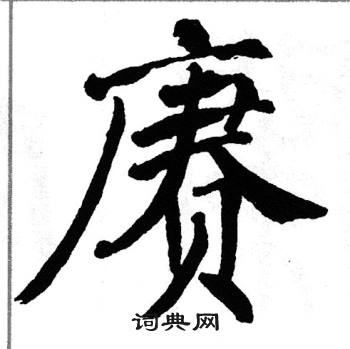 赓
词典网